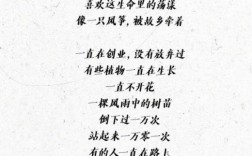 喜欢这生命里的荡漾
像一只风筝，被故乡牵着
一直在创业，没有放弃过
有些植物一直在生长
一直不开花
一棵风雨中的树苗
倒下过一万次
站起来一万零一次
有的人一直在路上